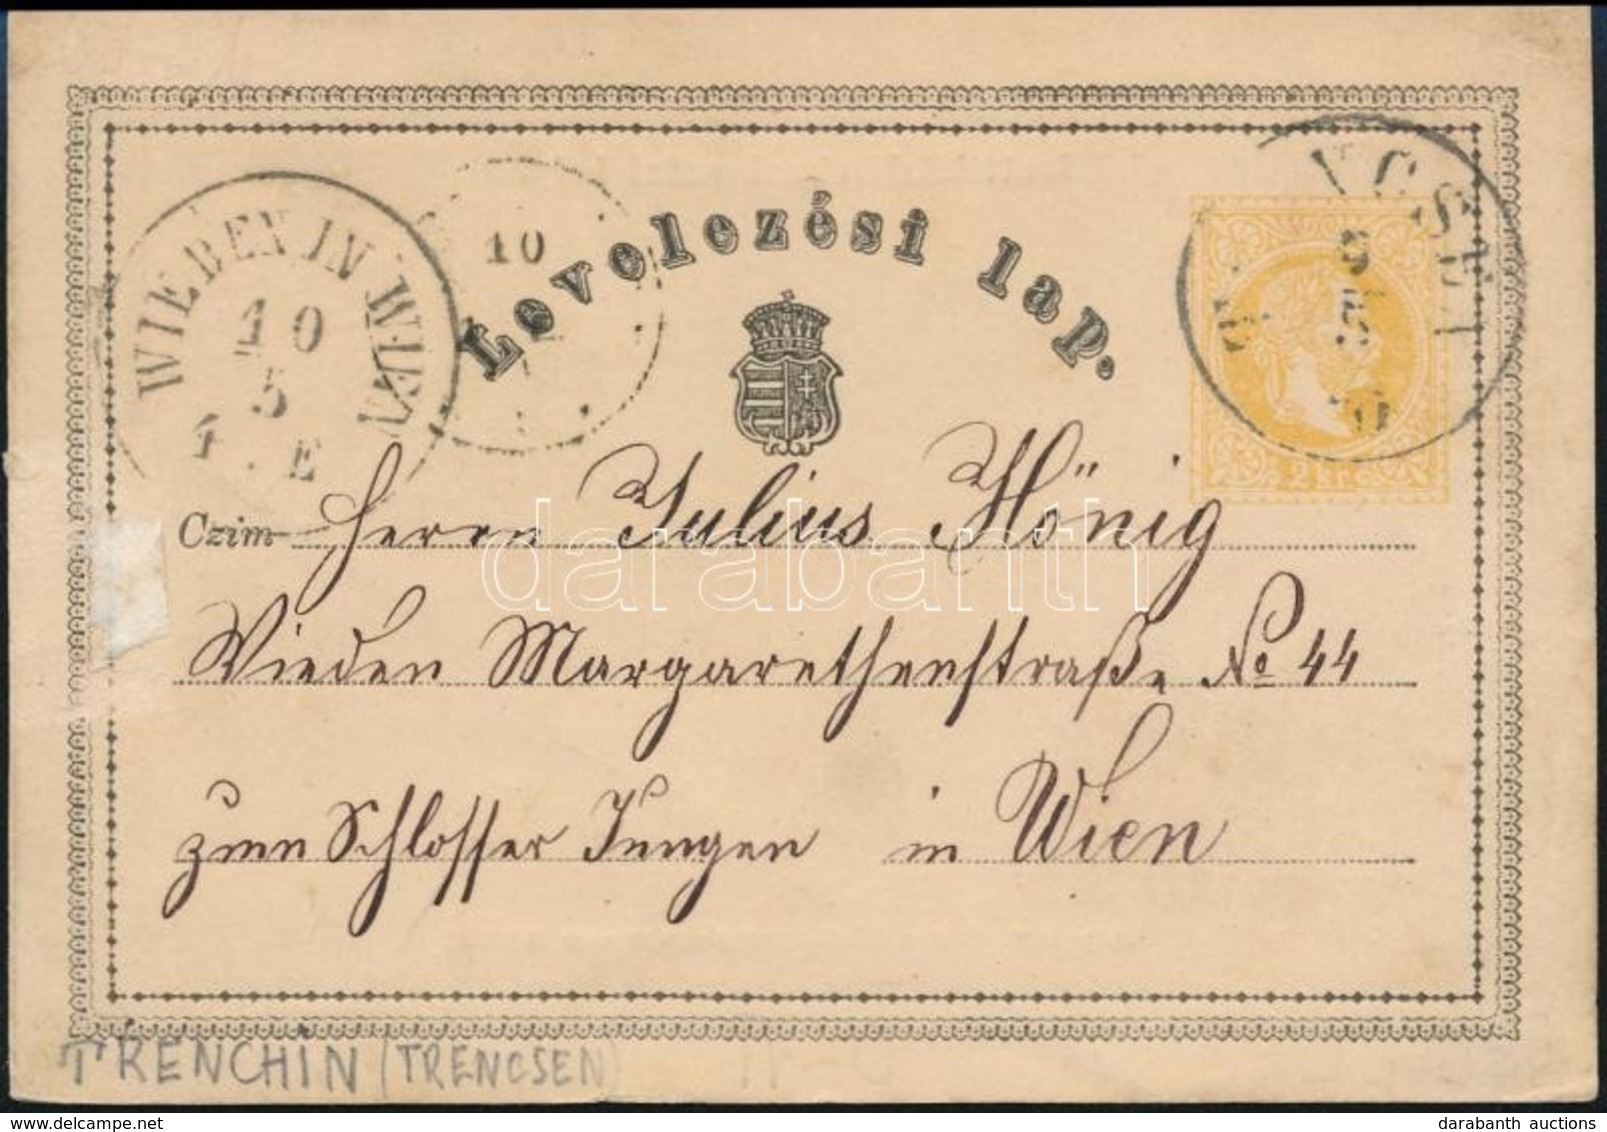 Levelezési lap.
WIEDEN IN WIEN
10
5
E
10
2 kr
Czim Herrn Julius König
Wieden Margarethenstraße No 44
zum Schlosser Jungen in Wien
TRENCHIN (TRENCSEN)
darabanth
darabanth auctions
www.delcampe.net